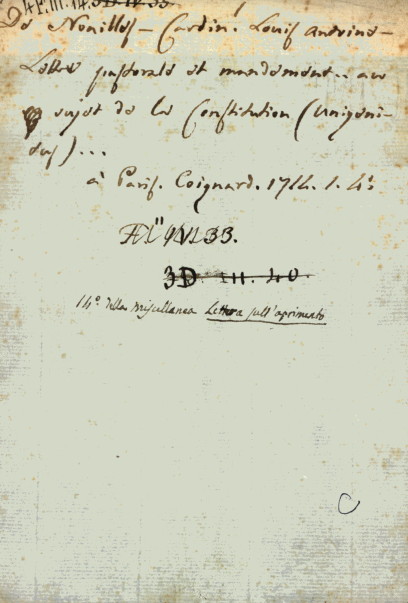 De Noailles - Cardin. Louis Antoine -
Lettre pastorale et mandement.. au
sujet de la Constitution (Unigeni-
tus)...
à Paris. Coignard. 1714. 1. 4°.
33.
3D. III. 40.
14° della Miscellanea Lettera sull'aprimento
C